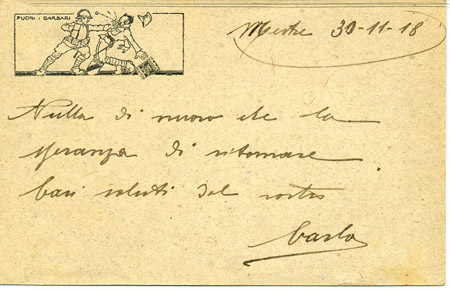 FUORI I BARBARI
Mestre 30-11-18
Nulla di nuovo che la
speranza di ritornare
baci saluti dal vostro
Carlo